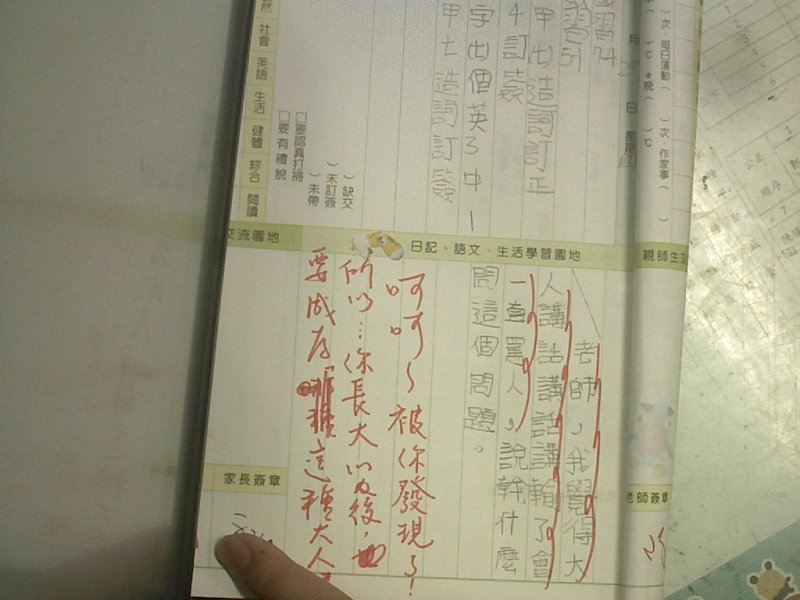 ）次 每日運動（ ）次 作家事（ ）
）℃ ★晚（ ）℃
月 日 星期
習74
習51
甲出造詞訂正
4訂簽
字出個英3中1
甲土造詞訂簽
）缺交
）未訂簽
）未帶
□要認真打掃
□要有禮貌
然 社會 英語 生活 健體 綜合 閱讀
親師生交
老師簽章
日記、語文、生活學習園地
老師，我覺得大
人講話講話講輸了會
一直罵人，說幹什麼
問這個問題。
呵呵～被你發現了！
所以…你長大以後，
要成為這種大人
交流園地
家長簽章